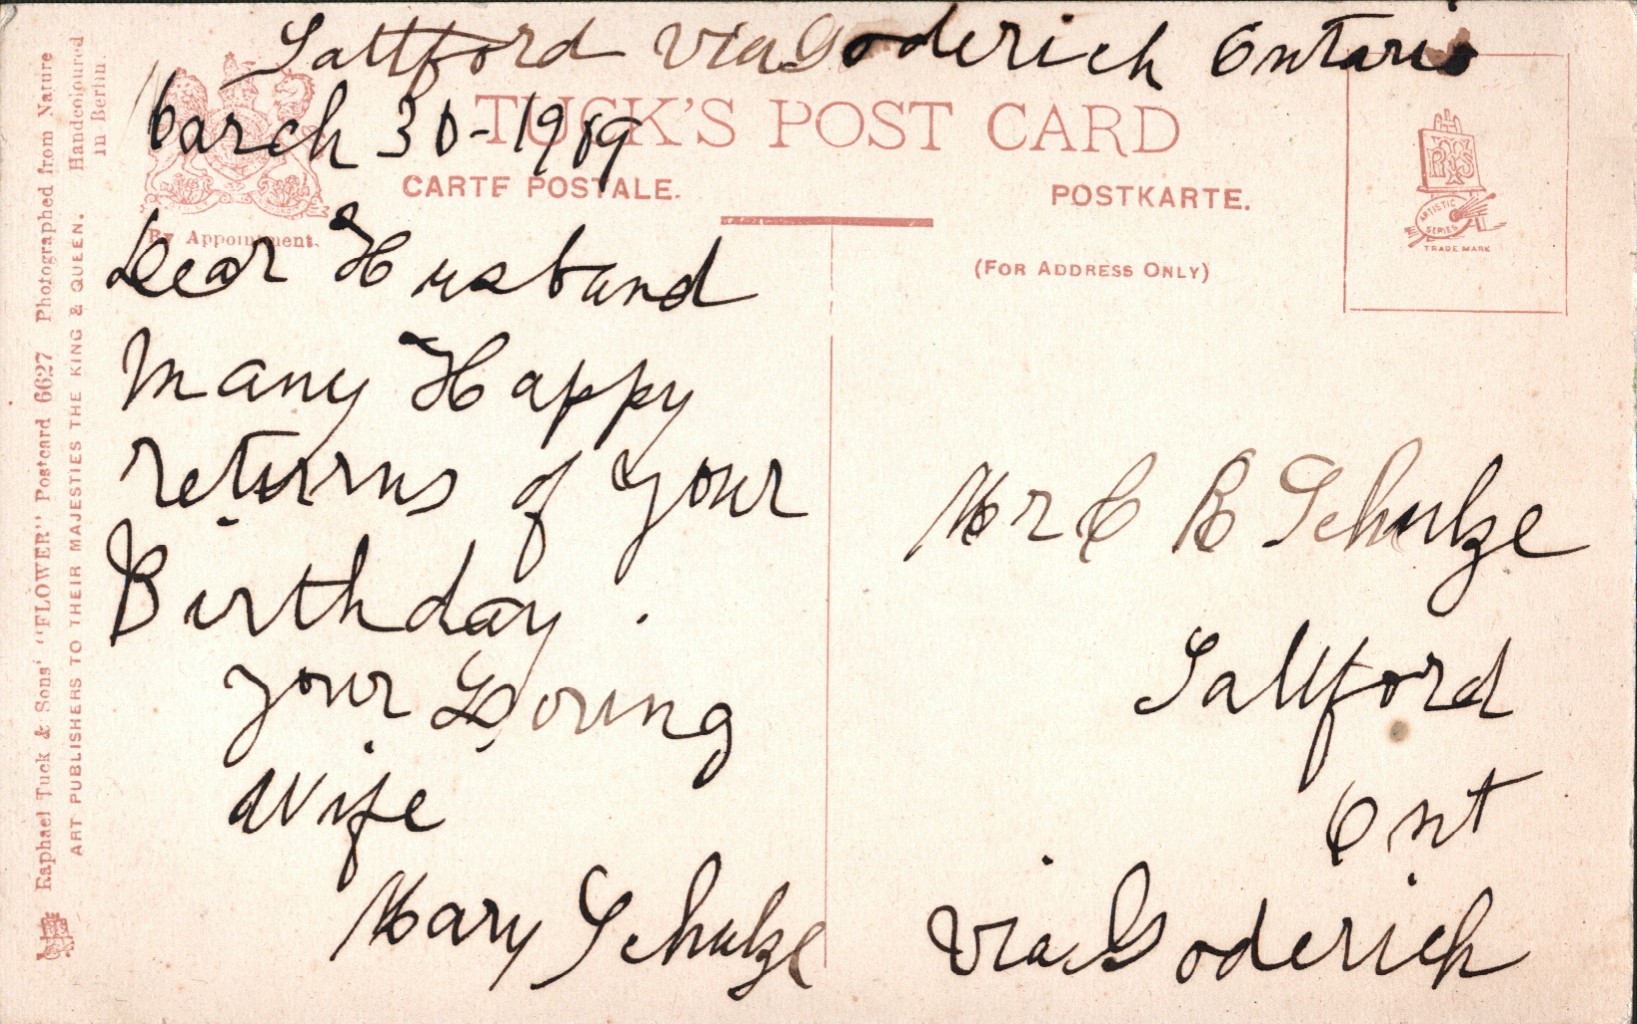 Saltford Via Goderich Ontario
March 30-1909
TUCK'S POST CARD
CARTE POSTALE.
POSTKARTE.
By Appointment.
(FOR ADDRESS ONLY)
RTS
ARTISTIC SERIES
TRADE MARK
Dear Husband
Many Happy
returns of your
Birthday.
your Loving
Wife
Mary Schulze
Mr C R Schulze
Saltford
Ont
Via Goderich
Raphael Tuck & Sons' "FLOWER" Postcard 6627 Photographed from Nature Handcoloured in Berlin.
ART PUBLISHERS TO THEIR MAJESTIES THE KING & QUEEN.